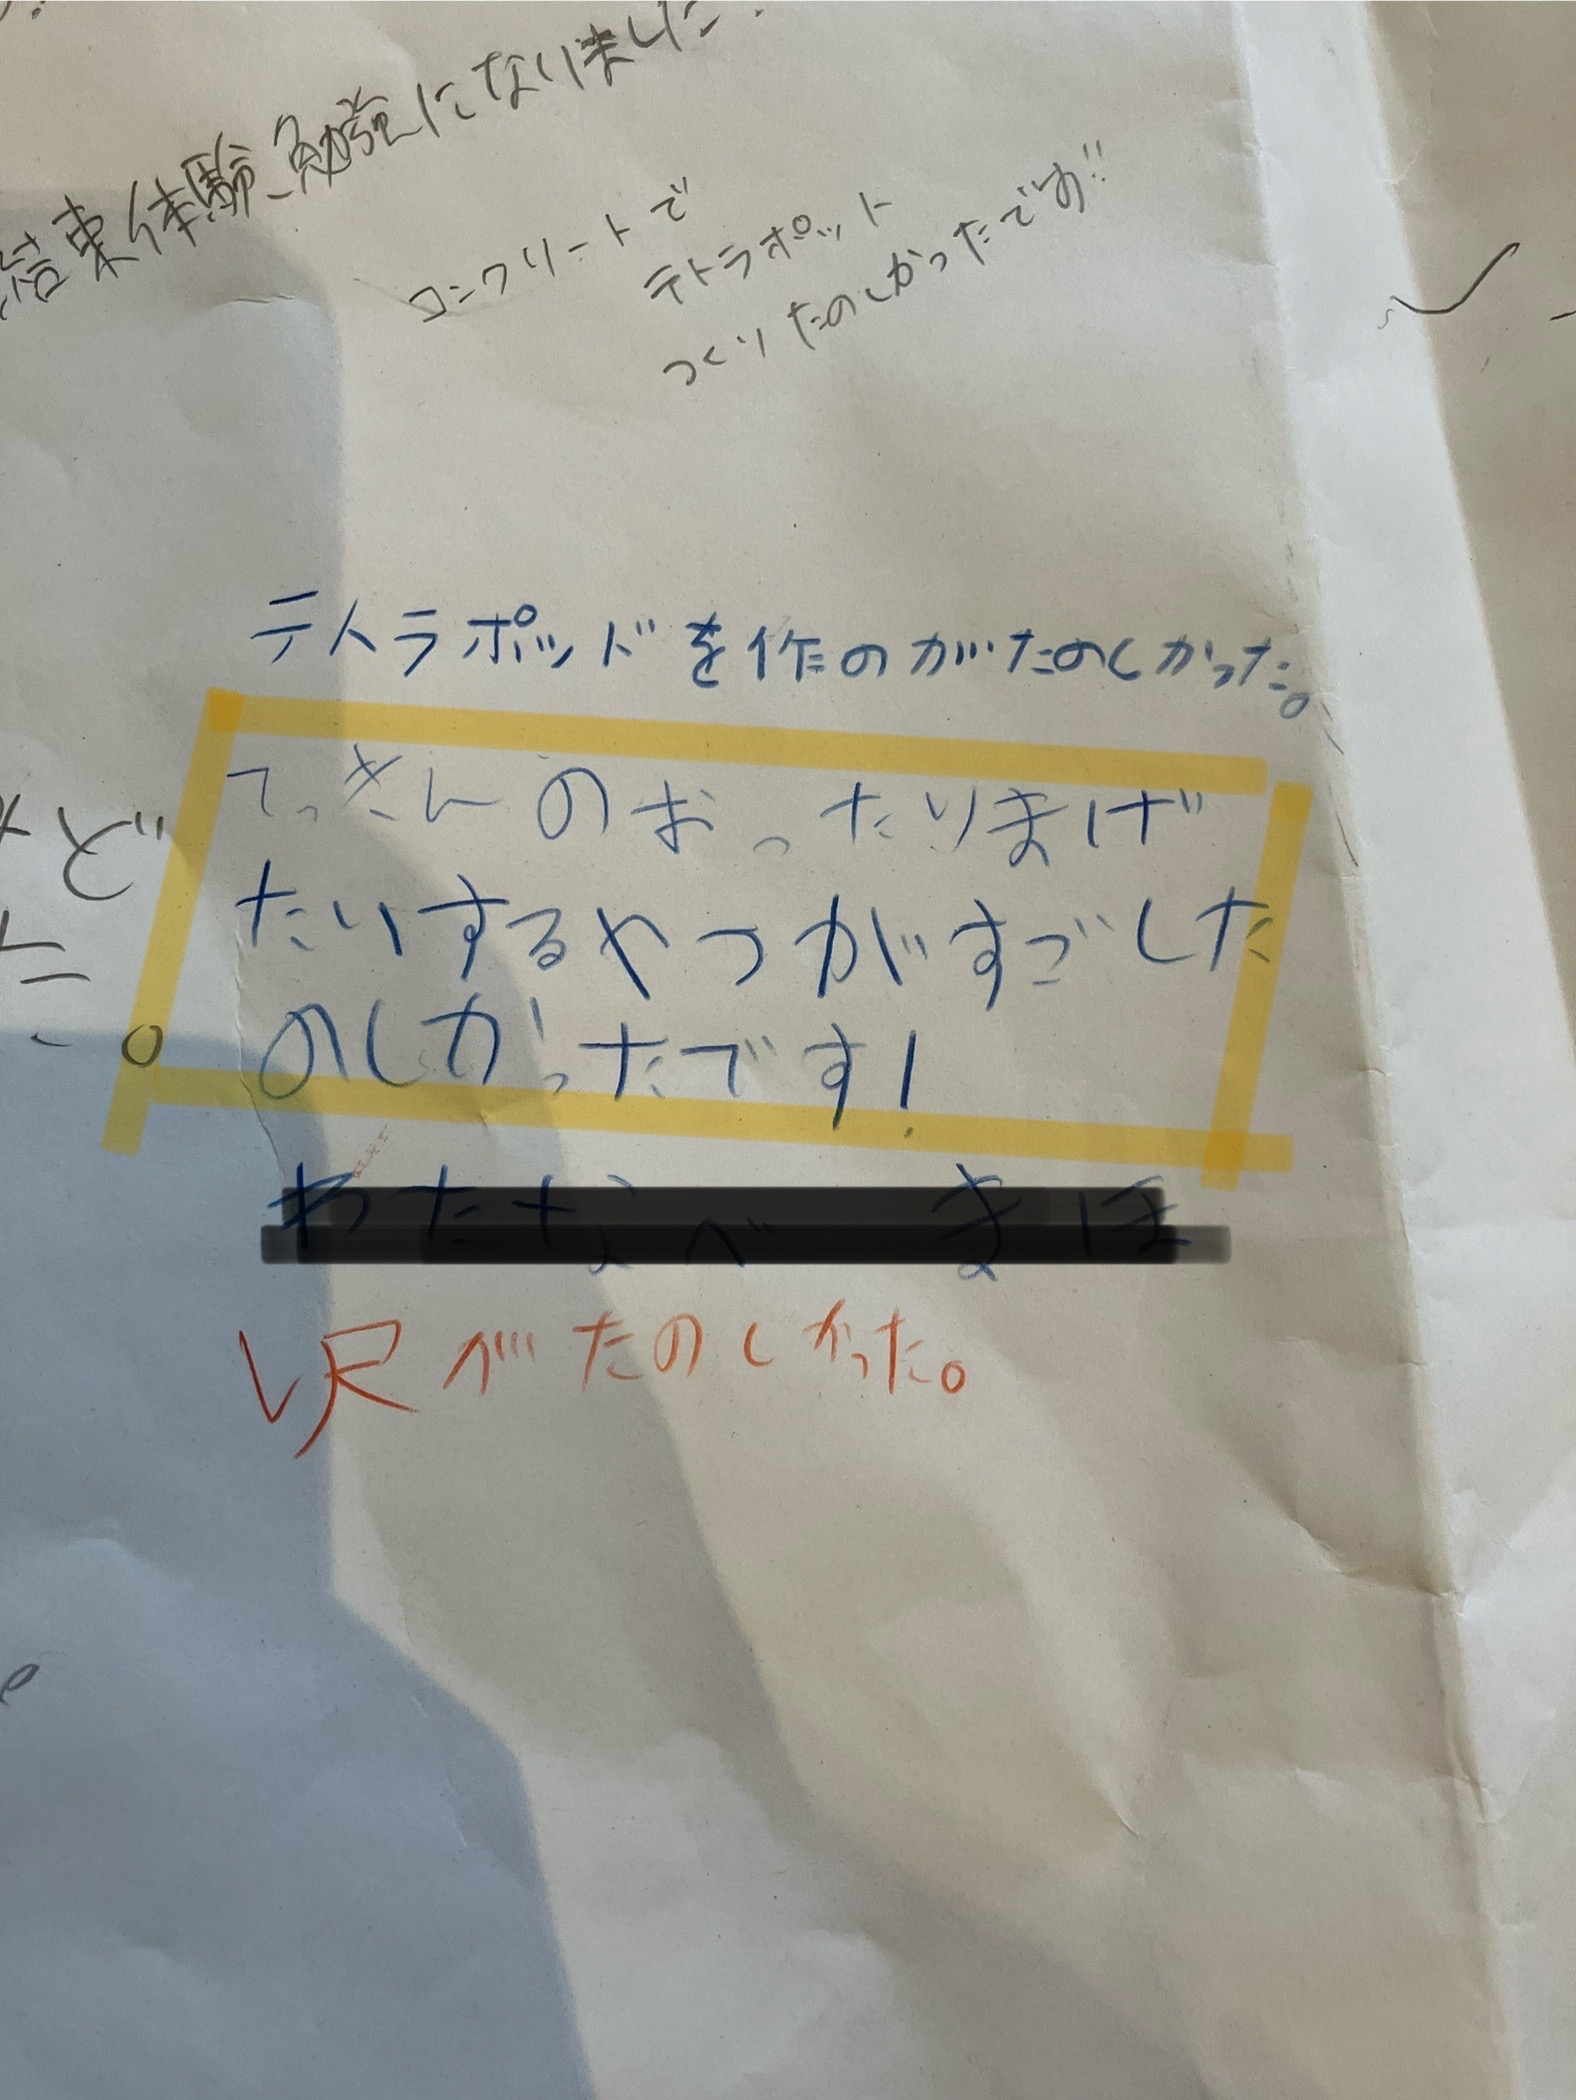 結束体験、勉強になりました
コンクリートで
テトラポット
つくりたのしかったです!!
テトラポッドを作のがたのしかった。
てっきんのおったりまげ
たいするやつがすごした
のしかったです!
ど
た。
がたのしかった。